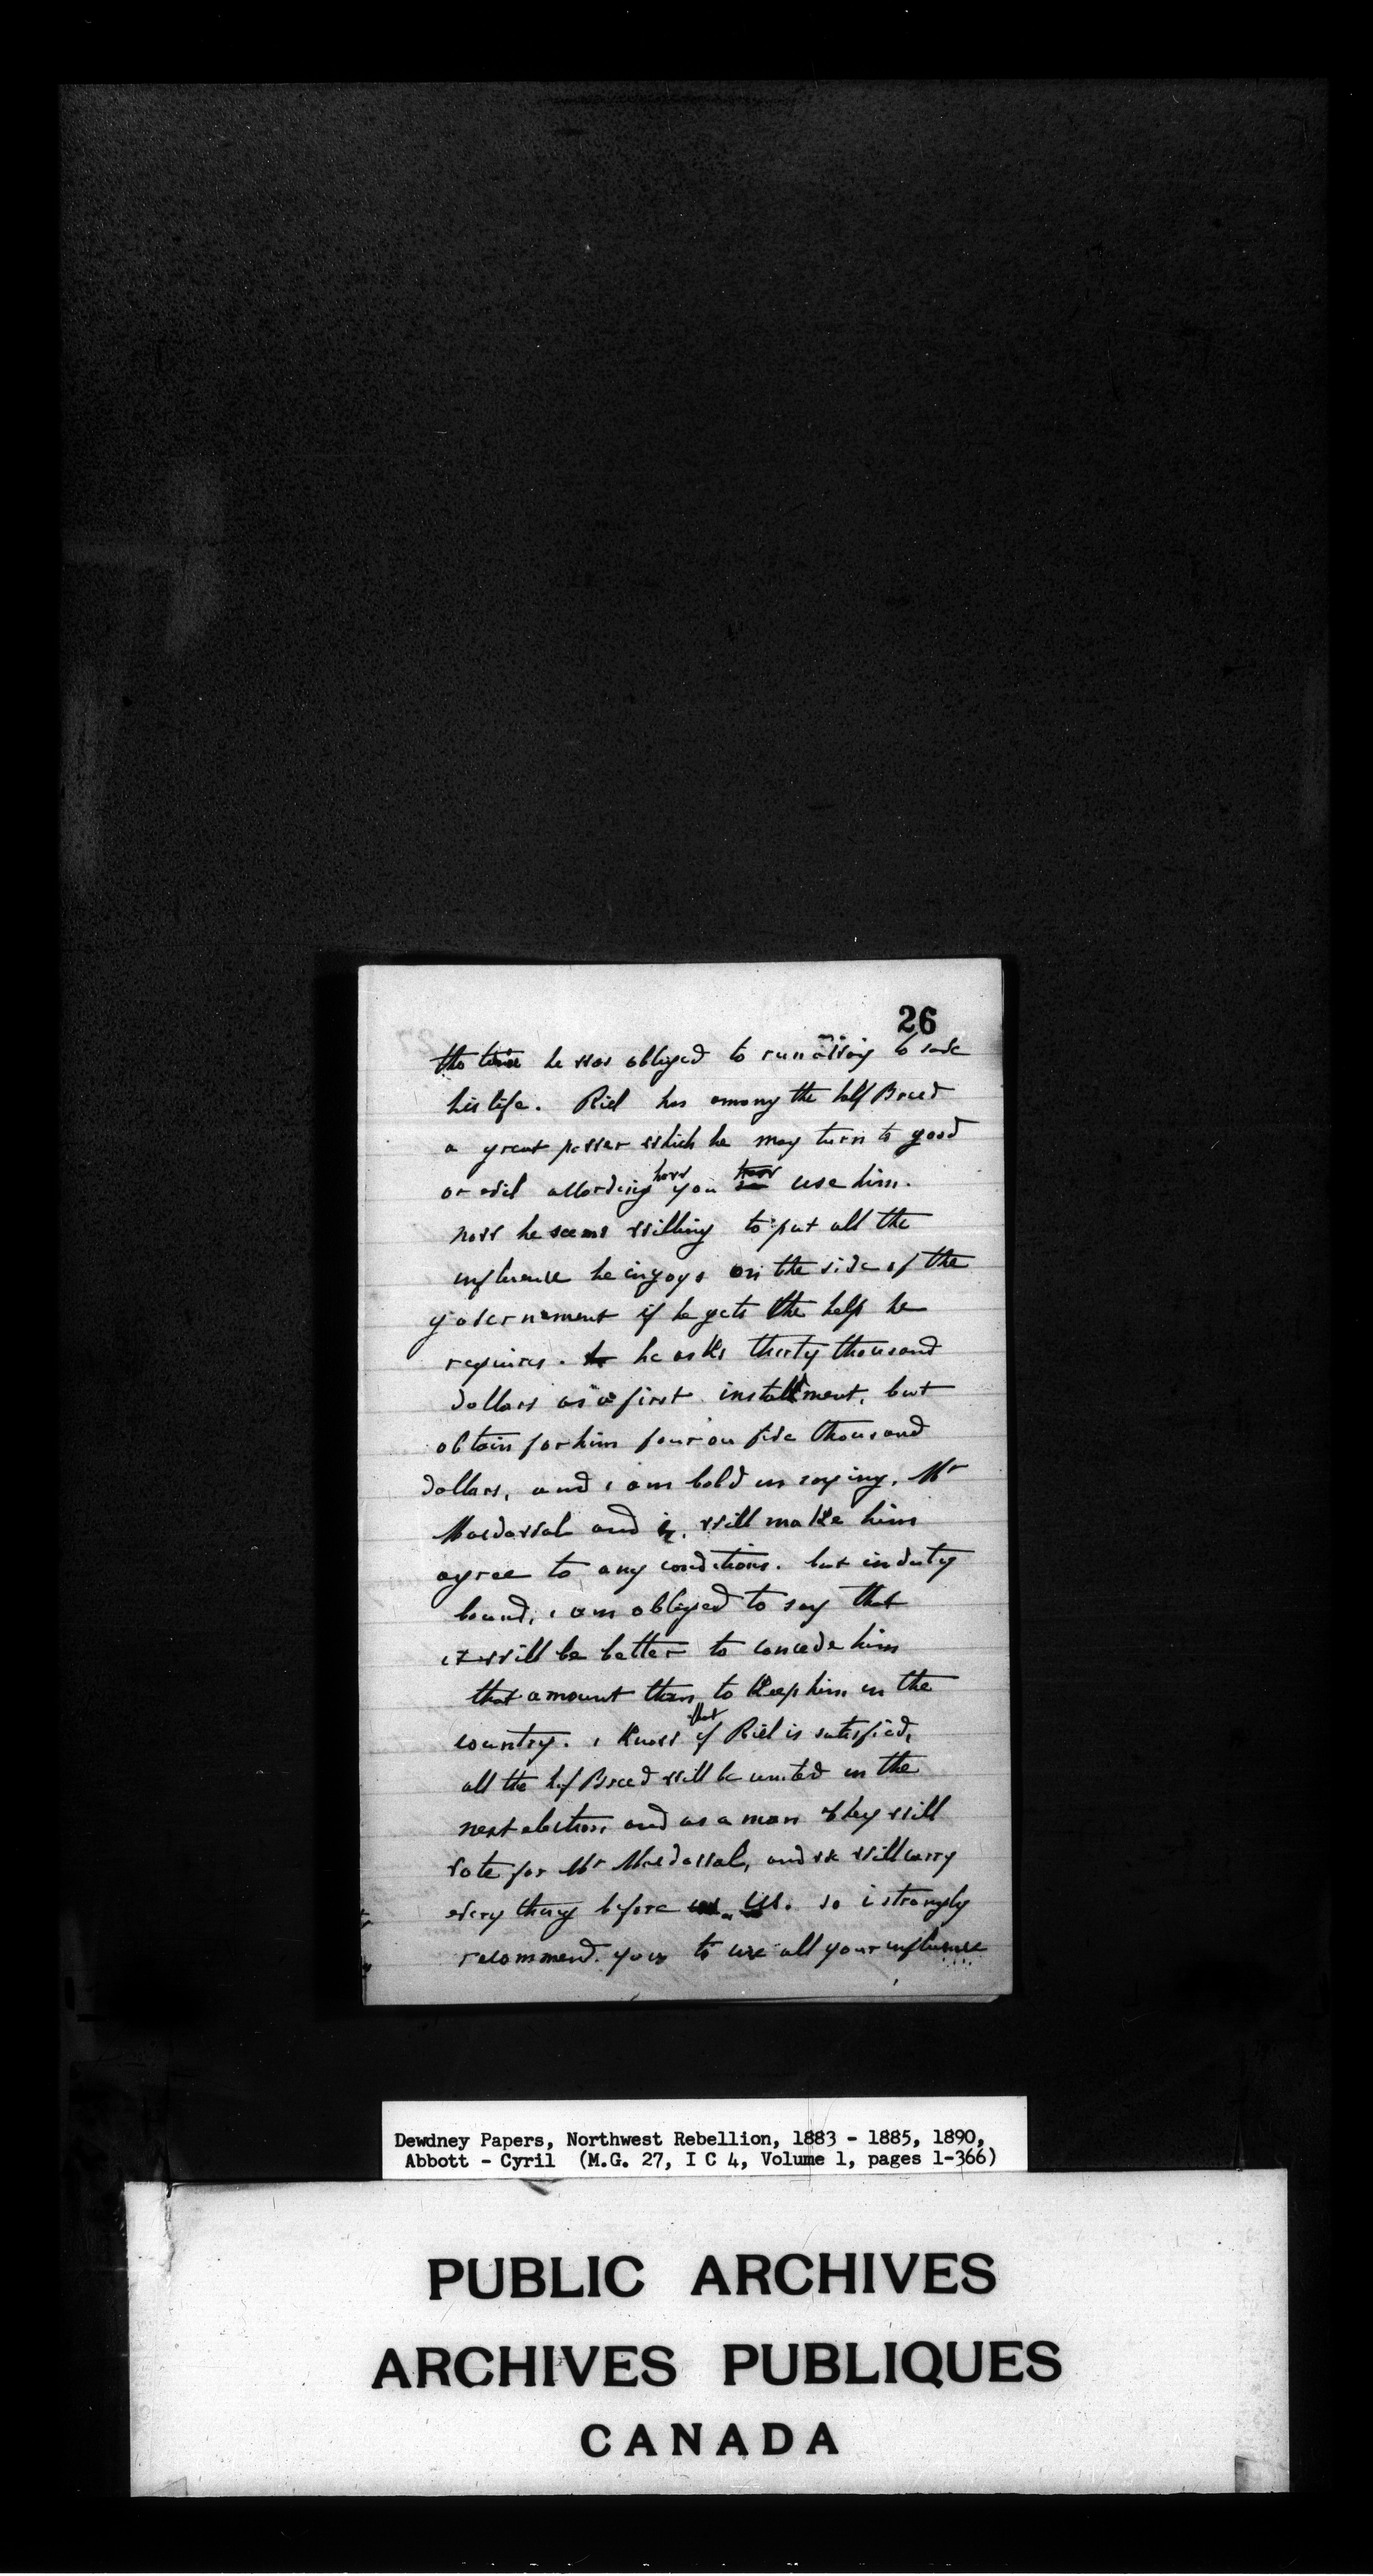 26
the time he was obliged to run away to save
his life. Riel has among the half Breed
a great power which he may turn to good
or evil according how you how use him.
now he seems willing to put all the
influence he injoys on the side of the
governement if he gets the help he
requires. he asks thirty thousand
dollars as a first installment, but
obtain for him four ou five thousand
dollars, and i am bold in saying, Mr
Macdowal and i, will make him
agree to any conditions. but in duty
bound, i am obliged to say that
it will be better to concede him
that amount than to Keep him in the
country. i Know that if Riel is satisfied,
all the hf Breed will be united in the
next election and as a man they will
vote for Mr Macdowal, and we will carry
every thing before us us. so i strongly
recommend you to use all your influence
Dewdney Papers, Northwest Rebellion, 1883 - 1885, 1890,
Abbott - Cyril (M.G. 27, I C 4, Volume 1, pages 1-366)
PUBLIC ARCHIVES
ARCHIVES PUBLIQUES
CANADA